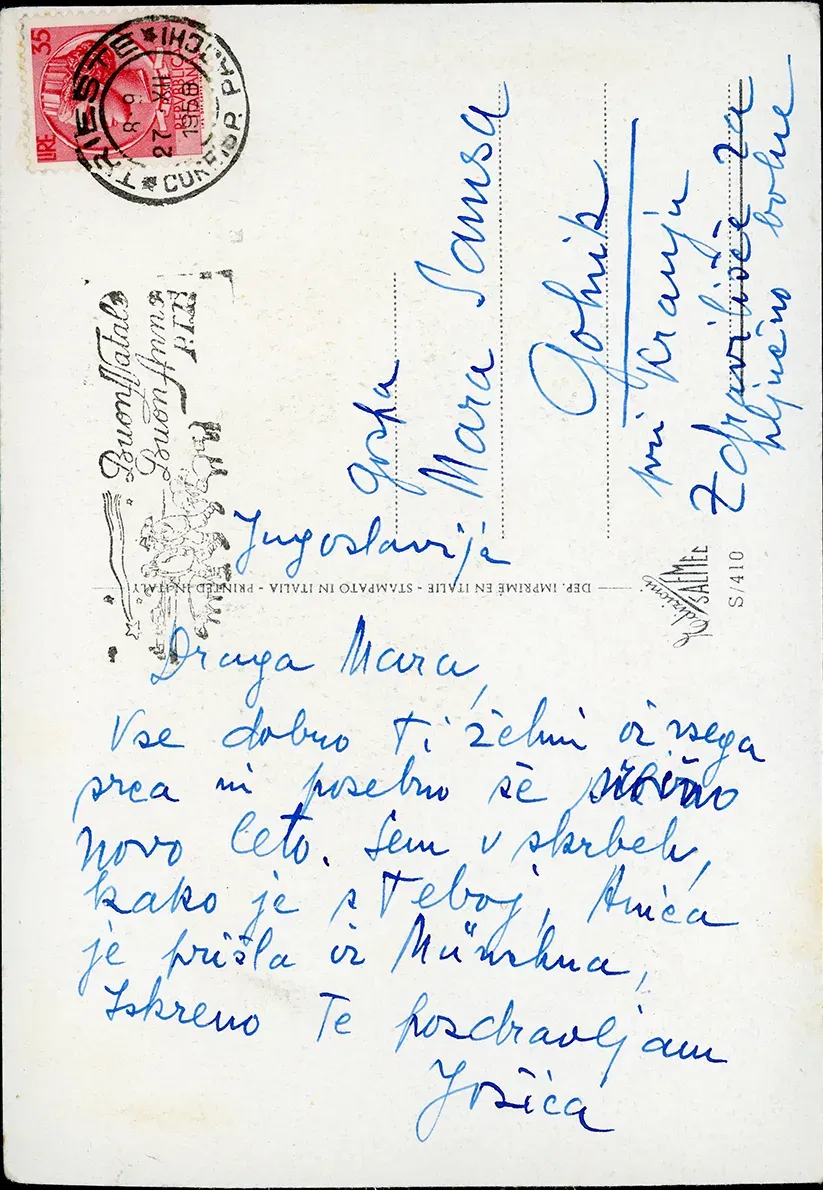 LIRE 35
REPVBBLICA
ITALIANA
TRIESTE
CORRISP. PACCHI
8-9
27 XII
1958
Buon Natale
Buon Anno
P.T.T.
Gospa
Mara Samsa
Golnik
pri Kranju
Zdravilišče za
pljučno bolne
Jugoslavija
DEP. IMPRIMÉ EN ITALIE - STAMPATO IN ITALIA - PRINTED IN ITALY
Edizioni
SAEMEC
S/410
Draga Mara,
Vse dobro ti želim iz vsega
srca in posebno še srečno
novo leto. Sem v skrbeh,
kako je s Teboj, Anica
je prišla iz Münchna,
Iskreno Te pozdravljam
Jožica